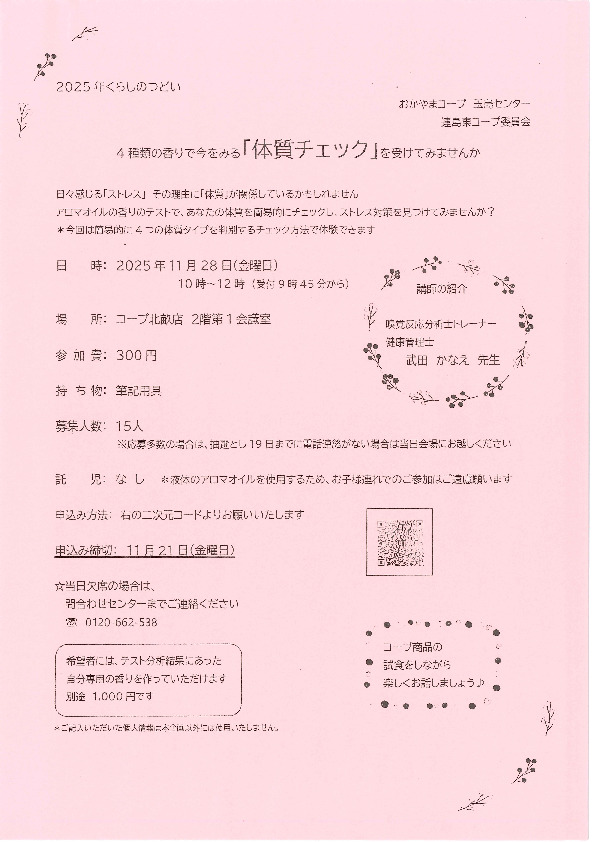 2025年くらしのつどい
おかやまコープ 玉島センター
連島東コープ委員会
4種類の香りで今をみる「体質チェック」を受けてみませんか
日々感じる「ストレス」 その理由に「体質」が関係しているかもしれません
アロマオイルの香りのテストで、あなたの体質を簡易的にチェックし、ストレス対策を見つけてみませんか?
*今回は簡易的に4つの体質タイプを判別するチェック方法で体験できます
日 時: 2025年11月28日(金曜日)
10時~12時 (受付9時45分から)
場 所: コープ北畝店 2階第1会議室
参 加 費: 300円
持 ち 物: 筆記用具
講師の紹介
嗅覚反応分析士トレーナー
健康管理士
武田 かなえ 先生
募集人数: 15人
※応募多数の場合は、抽選とし19日までに電話連絡がない場合は当日会場にお越しください
託 児: な し *液体のアロマオイルを使用するため、お子様連れでのご参加はご遠慮願います
申込み方法:右の二次元コードよりお願いいたします
申込み締切: 11月21日(金曜日)
☆当日欠席の場合は、
問合わせセンターまでご連絡ください
☎ 0120-662-538
希望者には、テスト分析結果にあった
自分専用の香りを作っていただけます
別途 1,000円です
コープ商品の
試食をしながら
楽しくお話しましょう♪
*ご記入いただいた個人情報は本企画以外には使用いたしません。